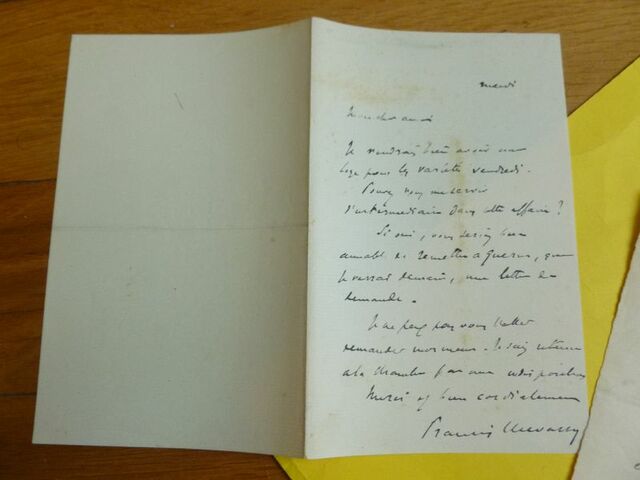 mardi
Mon cher ami
Je voudrais bien avoir une
loge pour les variétés vendredi.
Pouvez vous me servir
d'intermédiaire dans cette affaire ?
Si oui, vous seriez bien
aimable de remettre à, que
je verrai demain, une lettre de
demande.
Je ne peux pas vous l'aller
demander moi même. Je suis retenu
à la chambre par une indisposition
Merci et bien cordialement
Francis